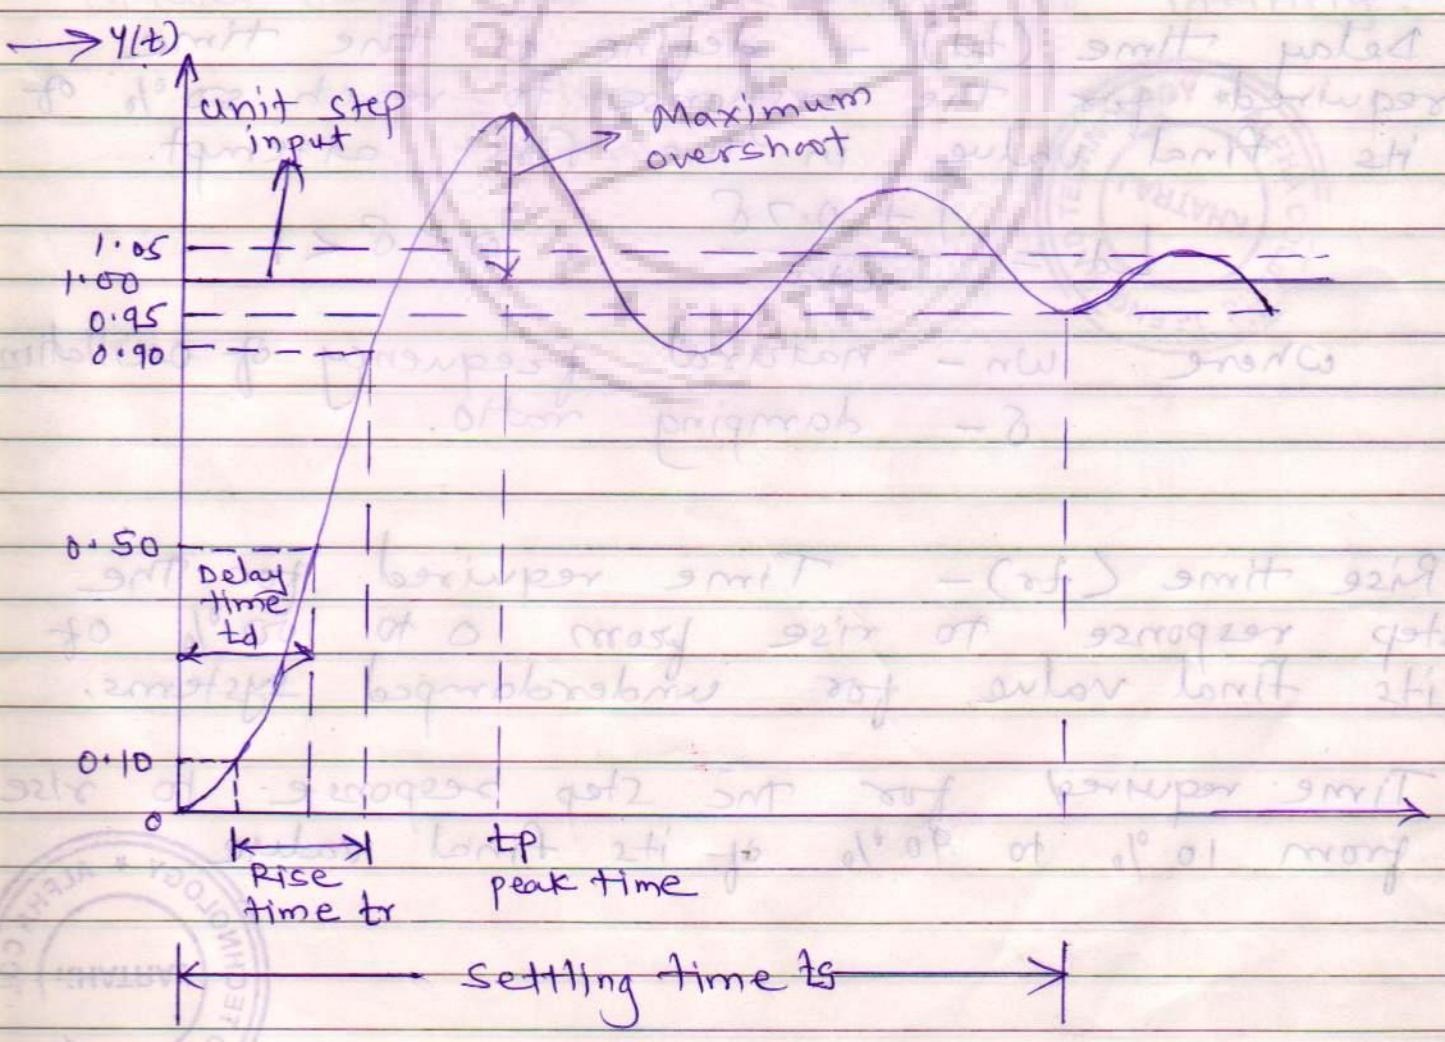 y(t)
unit step
input
Maximum
overshoot
1.05
1.00
0.95
0.90
0.50
Delay
time
td
0.10
0
tp
peak time
Rise
time tr
Settling time ts